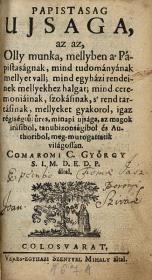 PAPISTASAG
UJSAGA,
az az,
Olly munka, mellyben a' Pápistaságnak, mind tudományának
mellyet vall; mind egyházi rendeinek
mellyekhez halgat; mind ceremoniáinak,
szokásinak, s' rendtartásinak,
mellyeket gyakorol, igaz
régiségül üres, minapi ujsága, az magok
irásiból, tanubizonságiból és Authoriból,
meg-mutogattatik
világosan.
COMAROMI C. GYÖRGY
S. I., M. D. E. P.
által,
COLOSVARAT,
VERES-EGYHAZI SZENTYEL MIHALY által.